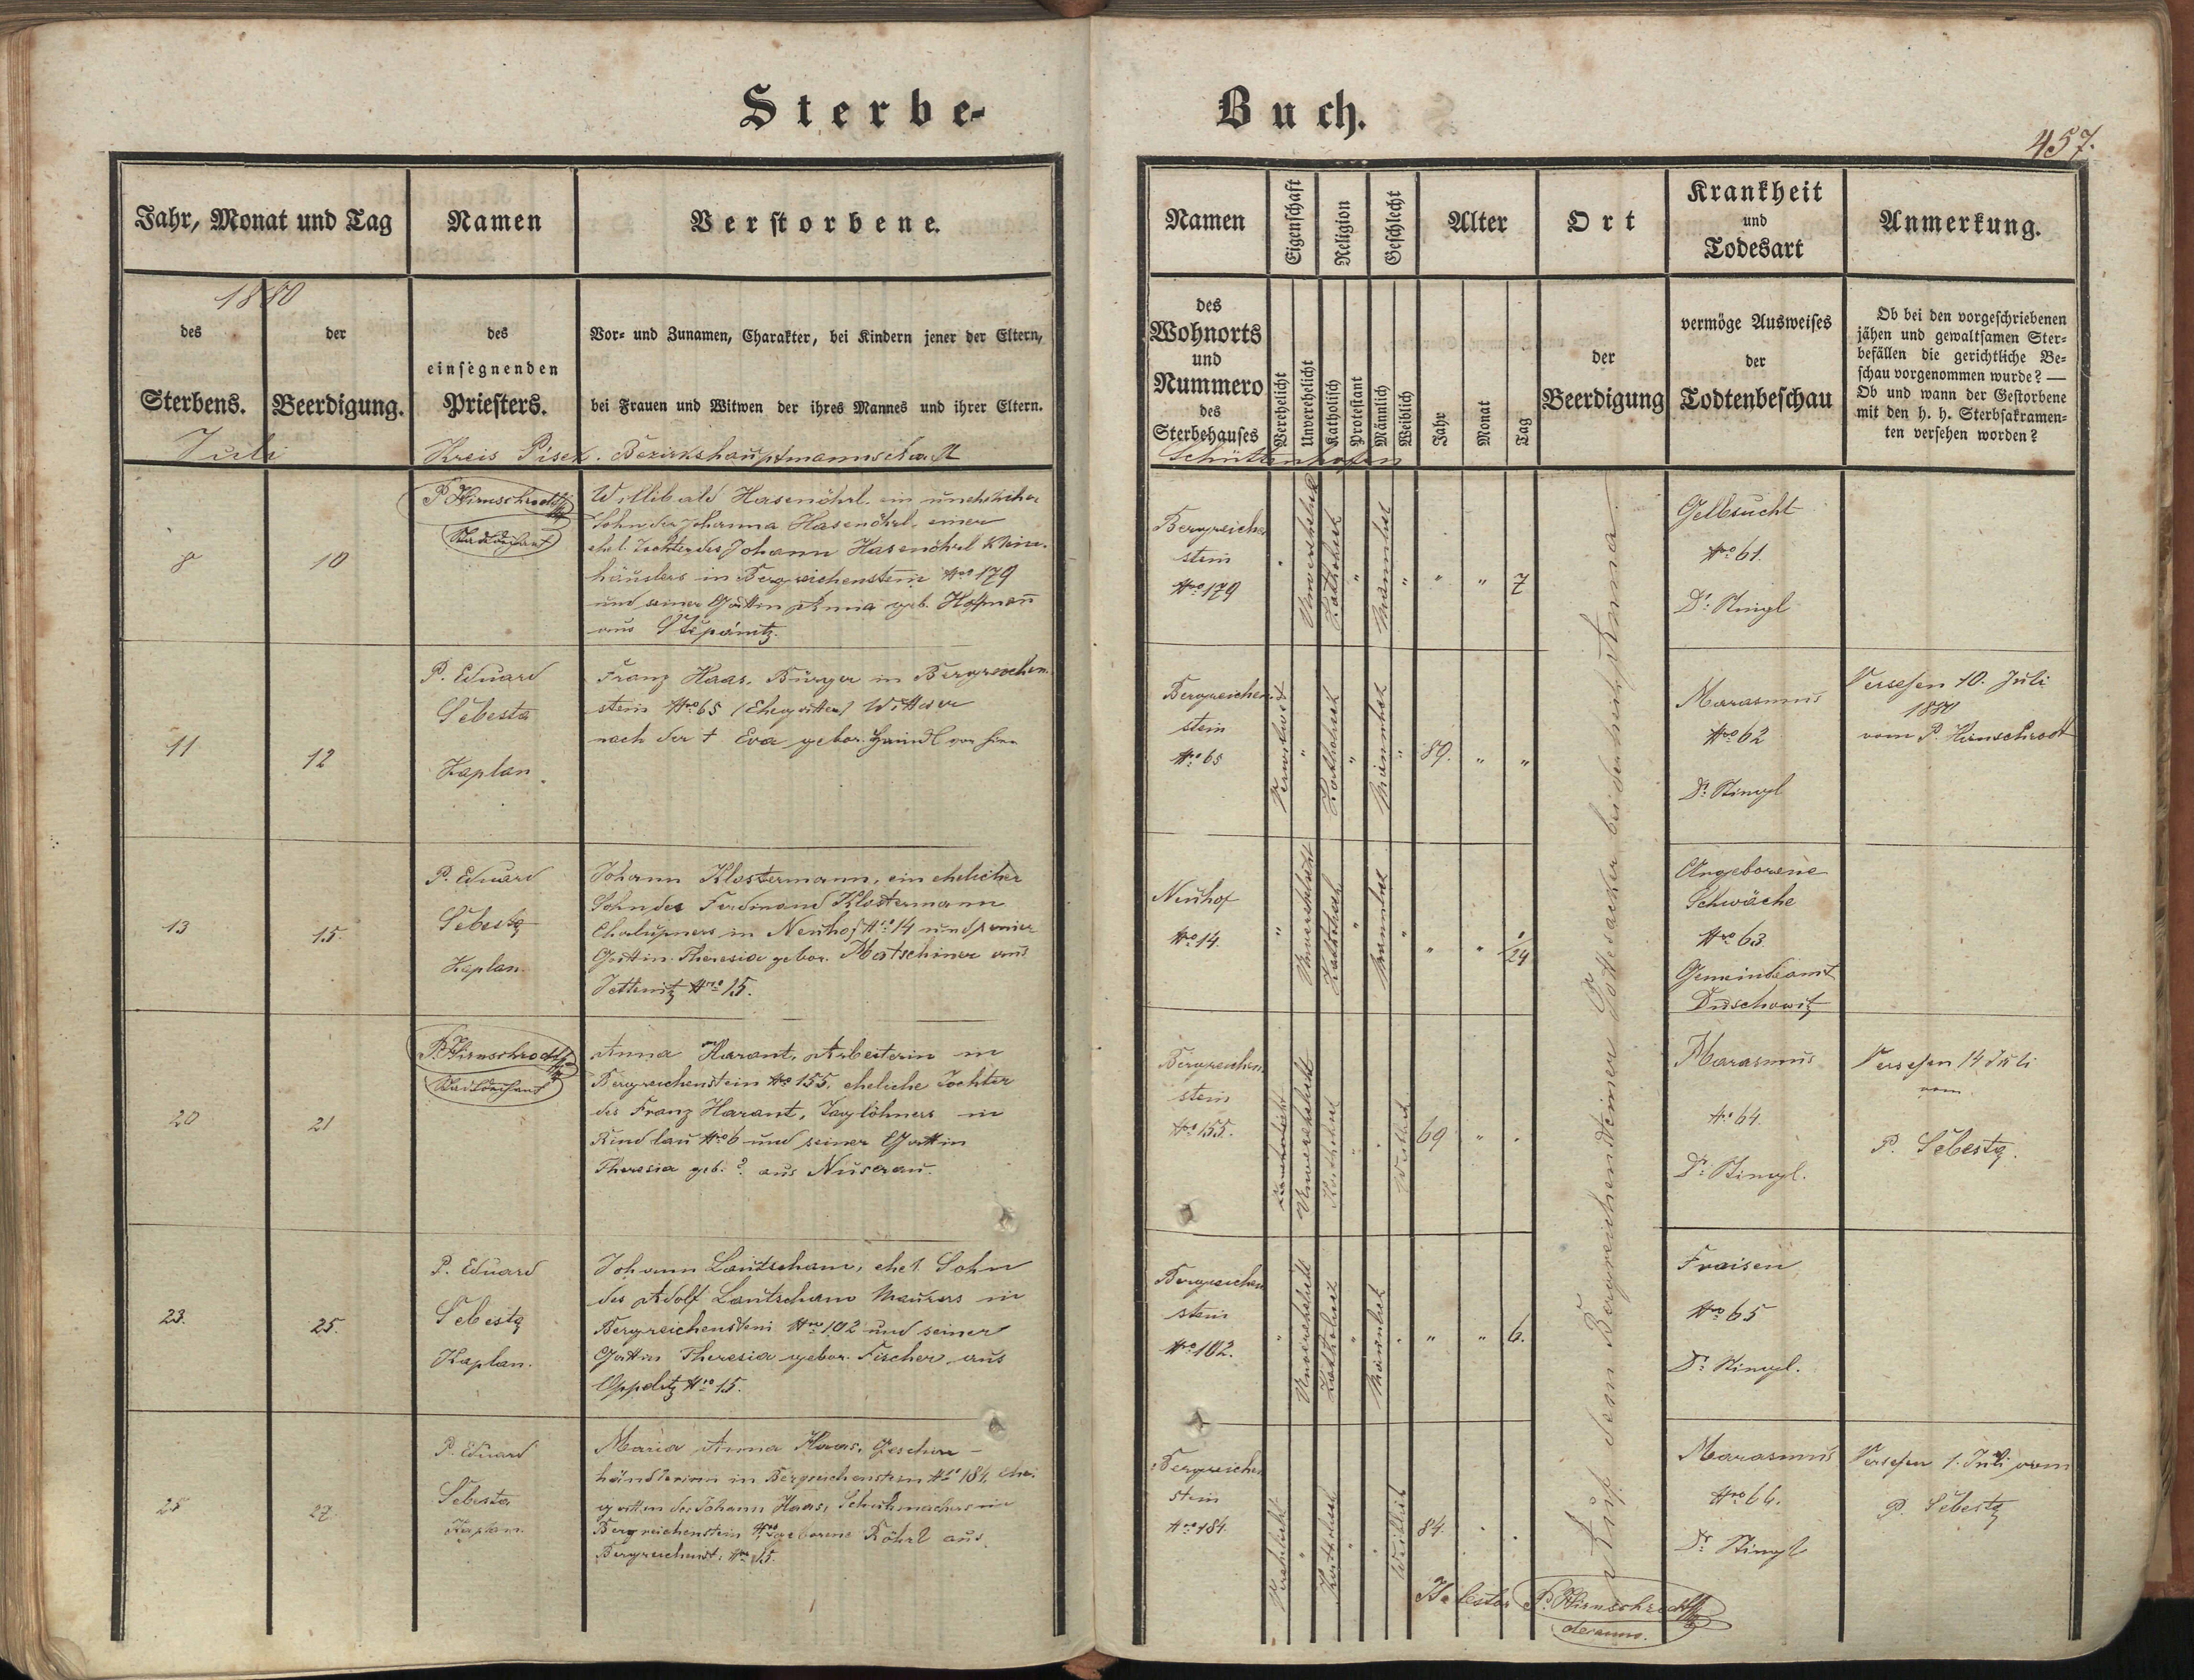 Sterbe-
Buch.
457.
Jahr, Monat und Tag
Namen
Verstorbene.
1880
des
Sterbens.
der
Beerdigung.
des
einsegnenden
Priesters.
Vor- und Zunamen, Charakter, bei Kindern jener der Eltern,
bei Frauen und Witwen der ihres Mannes und ihrer Eltern.
Juli
Kreis Pisek. Bezirkshauptmannschaft
8
10
P. Hirnschrodt
Stadtdechant
Willibald Hasenöhrl. ein unehelicher
Sohn der Johanna Hasenöhrl, einer
ehel. Tochter des Johann Hasenöhrl Klein-
häuslers in Bergreichenstein Nro 179
und seiner Gattin Anna geb. Hofmañ
aus Stepanitz.
11.
12
P. Eduard
Sebesta
Kaplan.
Franz Haas, Bürger in Bergreichen-
stein Nro 65 Wittwer
nach der † Eva gebor.
13
15.
P. Eduard
Sebesta
Kaplan.
Johann Klostermann, ein ehelicher
Sohn des Ferdinand Klostermann
Chalupners in Neuhof Nro 14 und seiner
Gattin Theresia gebor. Matschiner aus
Jettenitz Nro 15.
20
21
P. Hirnschrodt
Stadtdechant
Anna Harant, Arbeiterin in
Bergreichenstein Nro 155, eheliche Tochter
des Franz Harant, Taglöhners in
Rindlau Nro 6 und seiner Gattin
Theresia geb. ? aus Nuserau.
23.
25.
P. Eduard
Sebesta
Kaplan.
Johann Lautscham, ehel. Sohn
des Adolf Lautscham Maurers in
Bergreichenstein Nro 102 und seiner
Gattin Theresia gebor. Fischer aus
Oppelitz Nro 15.
25
27.
P. Eduard
Sebesta
Kaplan
Maria Anna Haas, Geschirr-
händlerin in Bergreichenstein Nro 184, Ehe-
gattin des Johann Haas, Schuhmachers in
Bergreichenstein geborene Röhrl aus
Bergreichenst. Nro 15.
Namen
Eigenschaft
Religion
Geschlecht
Alter
Ort
Krankheit
und
Todesart
Anmerkung.
des
Wohnorts
und
Nummero
des
Sterbehauses
Verehelicht
Unverehelicht
Katholisch
Protestant
Männlich
Weiblich
Jahr
Monat
Tag
der
Beerdigung
vermöge Ausweises
der
Todtenbeschau
Ob bei den vorgeschriebenen
jähen und gewaltsamen Ster-
befällen die gerichtliche Be-
schau vorgenommen wurde? —
Ob und wann der Gestorbene
mit den h. h. Sterbsakramen-
ten versehen worden?
Schüttenhofen
Bergreichen
stein
Nro 179
"
Unverehelicht
Katholisch
"
Männlich
"
"
"
7
Gelbsucht
Nro 61.
Dr. Stingl
Bergreichen
stein
Nro 65
Verwitwet
"
Katholisch
"
Männlich
"
89.
"
"
Marasmus
Nro 62
Dr. Stingl
Versehen 10. Juli
1880
vom P. Hirnschrodt
Neuhof
Nro 14.
"
Unverehelicht
Katholisch
"
Männlich
"
"
"
1/24
Angeborene
Schwäche
Nro 63.
Gemeindeamt
Duschowitz
Bergreichen
stein
Nro 155.
Unverehelicht
Katholisch
"
Weiblich
69
"
Marasmus
Nro 64.
Dr. Stingl.
Versehen 14 Juli
vom
P. Sebesta.
Bergreichen
stein
Nro 102.
"
Unverehelicht
Katholisch
"
Männlich
"
"
"
6.
Fraisen
Nro 65
Dr. Stingl.
Bergreichen
stein
Nro 184.
Verehelicht
"
Katholisch
"
Weiblich
84.
Marasmus
Nro 66.
Dr. Stingl
Versehen 1. Juli vom
P. Sebesta
Auf dem Bergreichensteiner Gottesacker bei der
P. Hirnschrodt
decanus.